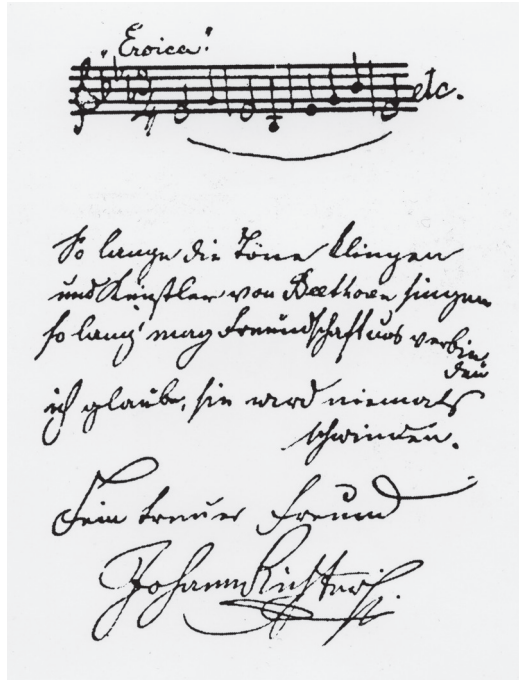 „Eroica“.
etc.
So lange die Töne klingen
und Künstler von Beethoven singen
so lang' mag Freundschaft uns verbin-
den
ich glaube, sie wird niemals
schwinden.
Dein treuer Freund
Johann Richter